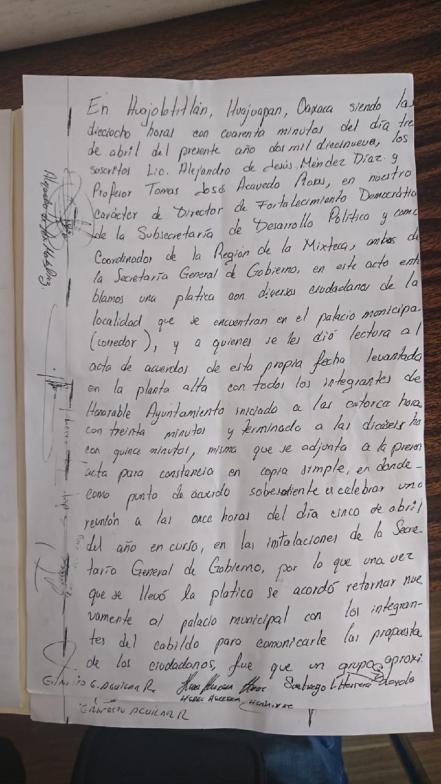 En Huajolotitlán, Huajuapan, Oaxaca siendo las
dieciocho horas con cuarenta minutos del día tre
de abril del presente año dos mil diecinueve, los
suscritos Lic. Alejandro de Jesús Méndez Díaz y
Profesor Tomas José Acevedo Rosas, en nuestro
carácter de Director de Fortalecimiento Democrátic
de la Subsecretaría de Desarrollo Político y como
Coordinador de la Región de la Mixteca, ambos de
la Secretaría General de Gobierno, en este acto enta
blamos una platica con diversos ciudadanos de la
localidad que se encuentran en el palacio municipa
(corredor), y a quienes se les dió lectura al
acta de acuerdos de esta propia fecha levantada
en la planta alta con todos los integrantes de
Honorable Ayuntamiento iniciado a las catorce hora
con treinta minutos y terminado a las dieciseis ho
con quince minutos, misma que se adjunta a la presen
acta para constancia en copia simple, en donde-
como punto de acuerdo sobresaliente es celebrar una
reunión a las once horas del día cinco de abril
del año en curso, en las instalaciones de la Secre-
taría General de Gobierno, por lo que una vez
que se llevó la platica se acordó retornar nue
vamente al palacio municipal con los integran-
tes del cabildo para comunicarle las propuesta
de los ciudadanos, fue que un grupo aproxi-
G. AGUILAR R.
Santiago Herrera
ERNESTO AGUILAR R